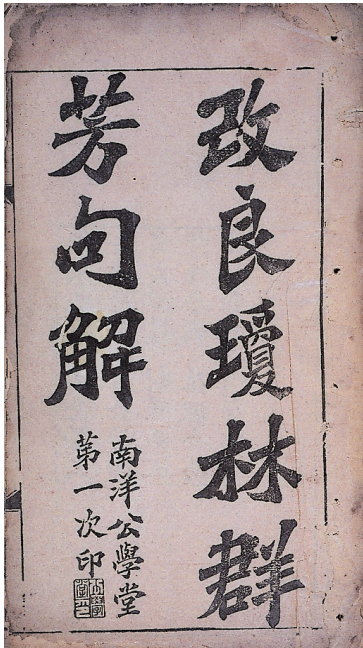 改良瓊林群
芳句解
南洋公學堂
第一次印